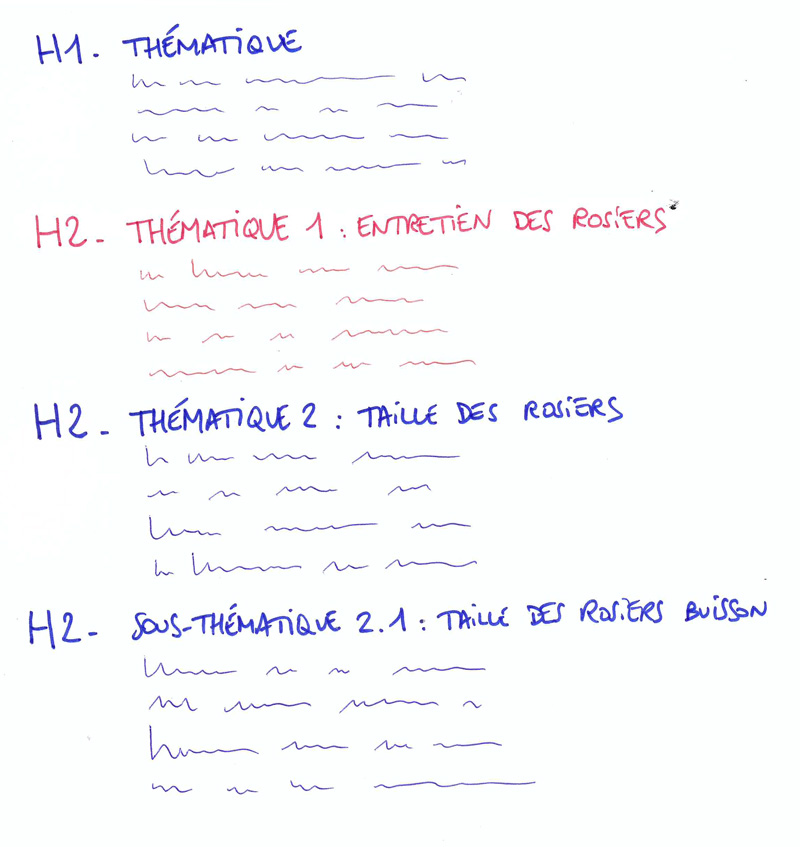 H1. THÉMATIQUE
H2- THÉMATIQUE 1 : ENTRETIEN DES ROSIERS
H2- THÉMATIQUE 2 : TAILLE DES ROSIERS
H2- SOUS-THÉMATIQUE 2.1 : TAILLE DES ROSIERS BUISSON